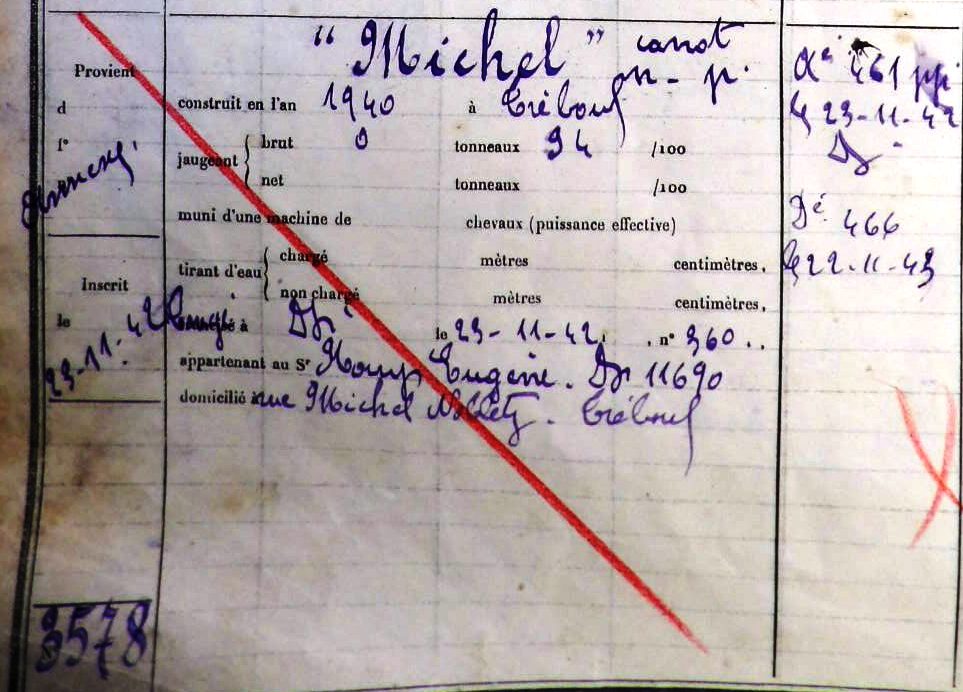 "Michel" canot
n - p.
Provient
d
f°
construit en l'an 1940 à Tréboul
jaugeant { brut 0 tonneaux 94 /100
net tonneaux /100
muni d'une machine de chevaux (puissance effective)
tirant d'eau { chargé mètres centimètres.
non chargé mètres centimètres.
Inscrit
le
23-11-42
à Dz le 23-11-42. n° 360..
appartenant au Sr Eugène. Dz 11690
domicilié à rue Michel Nobletz. Tréboul
3578
461
le 23-11-42
Dz.
Dé 466
le 22-11-43